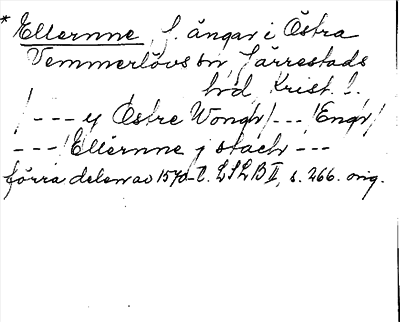 * Ellernne, f. ängar i Östra
Vemmerlövs sn Järrestads
hd, Krist. l.
/ --- y Östre Wongr/ --- /Engr/
--- /Ellernne j stach ---
förra delen av 1570-t. LSLB II, s. 266. orig.